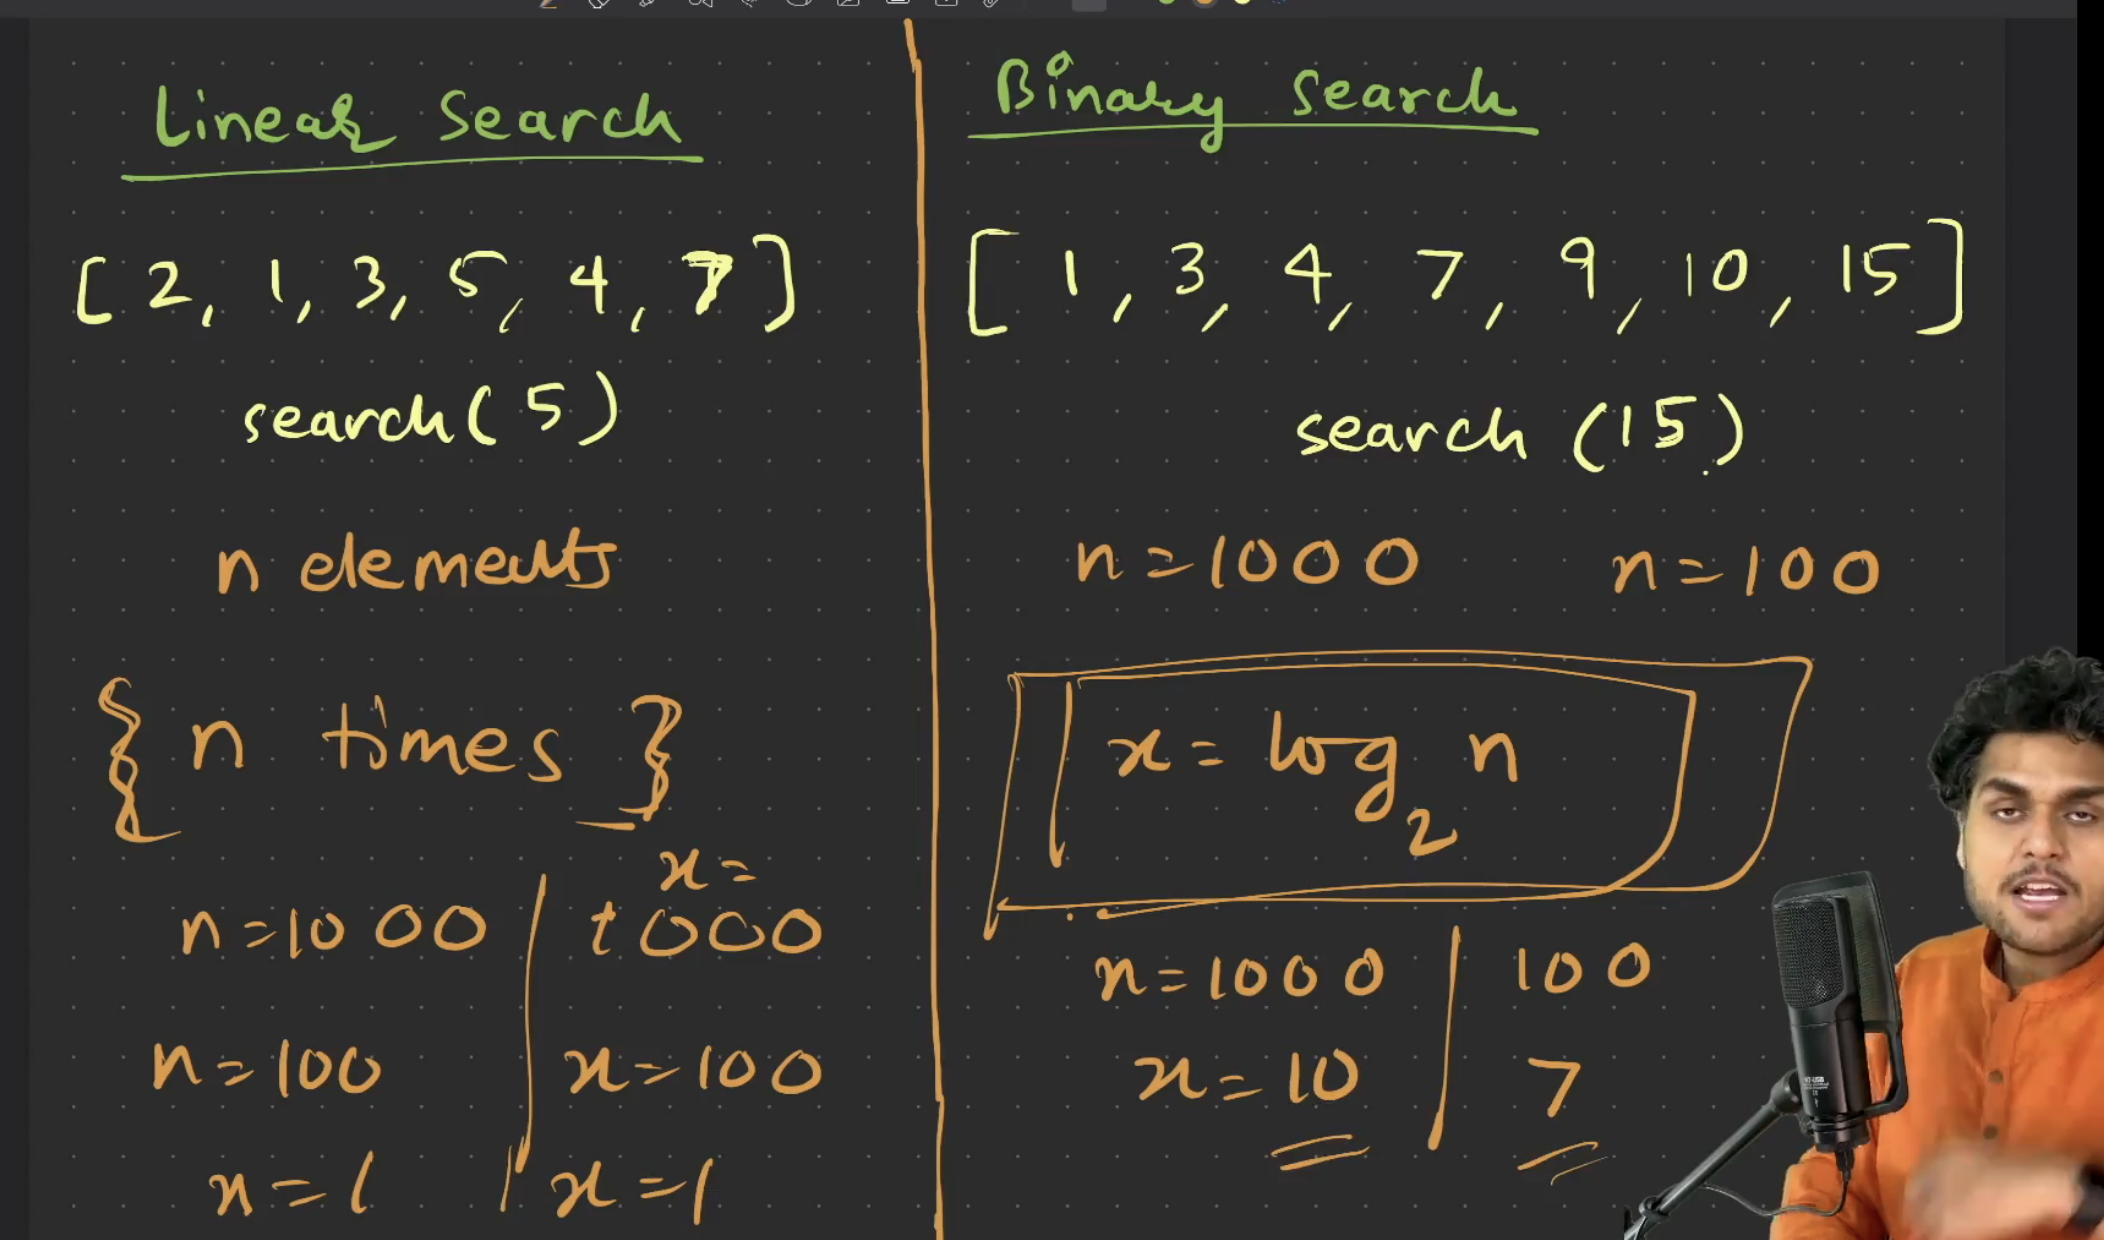 Linear Search
[ 2, 1, 3, 5, 4, 7 ]
search( 5 )
n elements
{ n times }
x =
n = 1000 | 1000
n = 100 | x = 100
n = 1 | x = 1
Binary Search
[ 1, 3, 4, 7, 9, 10, 15 ]
search (15)
n = 1000 n = 100
x = log₂ n
n = 1000 | 100
x = 10 | 7